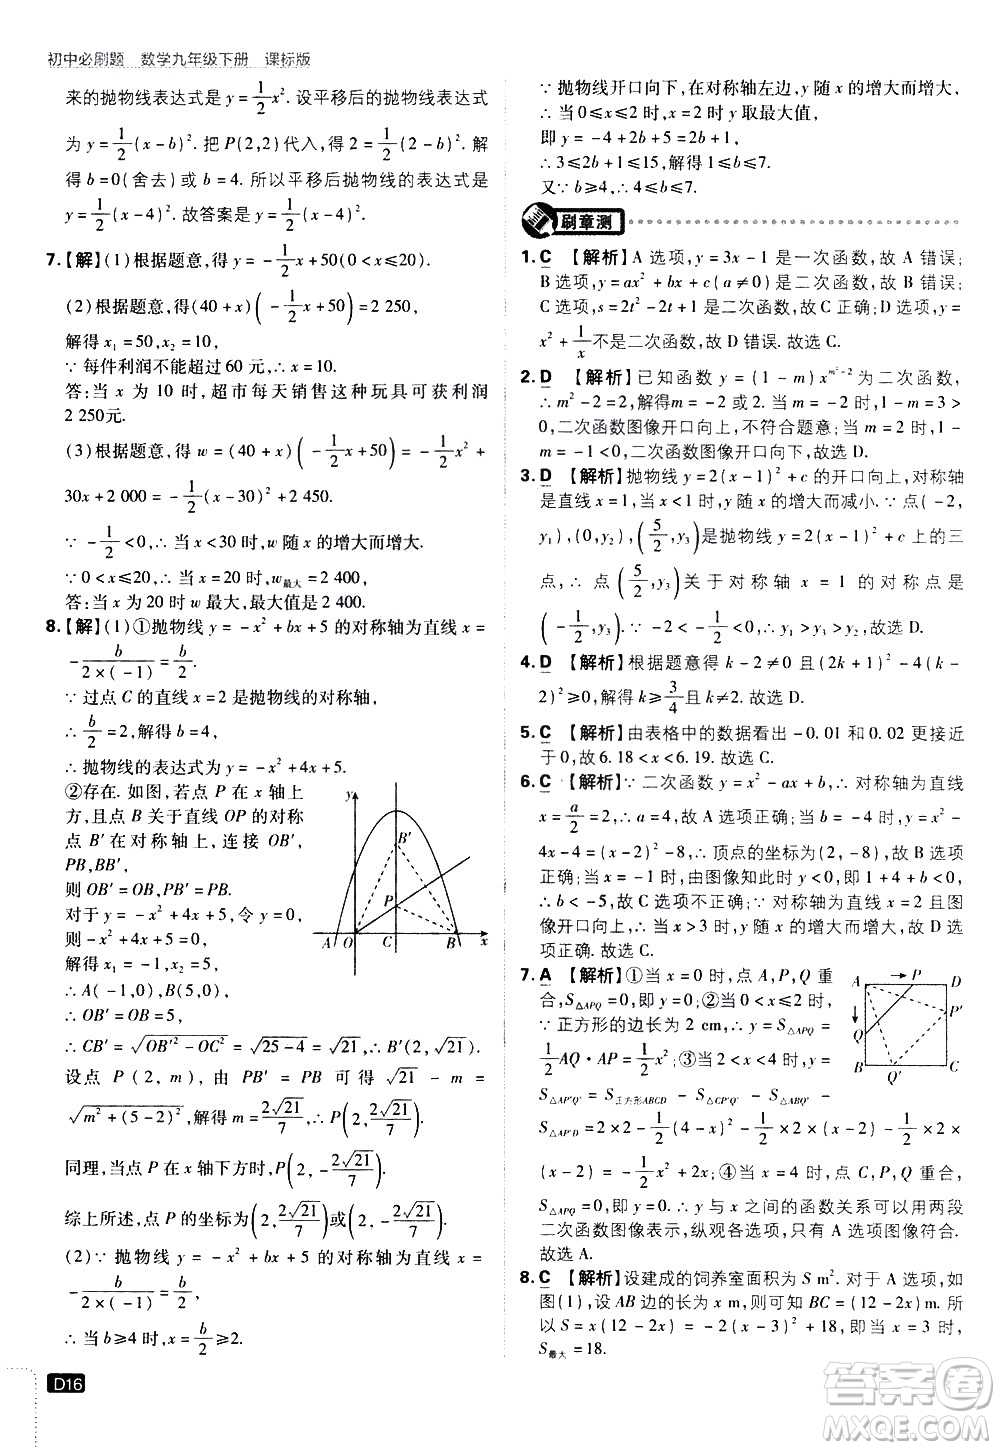 初中必刷题 数学九年级下册 课标版
来的抛物线表达式是 y=1/2x². 设平移后的抛物线表达式
为 y=1/2(x-b)². 把 P(2,2)代入,得 2=1/2(2-b)². 解
得 b=0(舍去)或 b=4. 所以平移后抛物线的表达式是
y=1/2(x-4)². 故答案是 y=1/2(x-4)².
7.【解】(1)根据题意,得 y=-1/2x+50(0<x≤20).
(2)根据题意,得(40+x)(-1/2x+50)=2 250,
解得 x₁=50,x₂=10,
∵ 每件利润不能超过 60 元,∴ x=10.
答:当 x 为 10 时,超市每天销售这种玩具可获利润
2 250元.
(3)根据题意,得 w=(40+x)(-1/2x+50)=-1/2x²+
30x+2 000=-1/2(x-30)²+2 450.
∵ -1/2<0,∴ 当 x<30 时,w 随 x 的增大而增大.
∵ 0<x≤20,∴ 当 x=20 时,w最大=2 400,
答:当 x 为 20 时 w 最大,最大值是 2 400.
8.【解】(1)①抛物线 y=-x²+bx+5 的对称轴为直线 x=
-b/(2×(-1))=b/2.
∵ 过点 C 的直线 x=2 是抛物线的对称轴,
∴ b/2=2,解得 b=4,
∴ 抛物线的表达式为 y=-x²+4x+5.
②存在. 如图,若点 P 在 x 轴上
方,且点 B 关于直线 OP 的对称
点 B′在对称轴上,连接 OB′,
PB,PB′,
则 OB′=OB,PB′=PB.
对于 y=-x²+4x+5,令 y=0,
则 -x²+4x+5=0,
解得 x₁=-1,x₂=5,
∴ A(-1,0),B(5,0).
∴ OB′=OB=5,
∴ CB′=√(OB′²-OC²)=√(25-4)=√21,∴ B′(2,√21).
设点 P(2,m),由 PB′=PB 可得 √21-m=
√(m²+(5-2)²),解得 m=2√21/7,∴ P(2,2√21/7).
同理,当点 P 在 x 轴下方时,P(2,-2√21/7).
综上所述,点 P 的坐标为(2,2√21/7)或(2,-2√21/7).
(2)∵ 抛物线 y=-x²+bx+5 的对称轴为直线 x=
-b/(2×(-1))=b/2,
∴ 当 b≥4 时,x=b/2≥2.
y
B′
P
A O C B x
D16
∵ 抛物线开口向下,在对称轴左边,y 随 x 的增大而增大,
∴ 当 0≤x≤2 时,x=2 时 y 取最大值,
即 y=-4+2b+5=2b+1,
∴ 3≤2b+1≤15,解得 1≤b≤7.
又∵ b≥4,∴ 4≤b≤7.
刷章测
1. C 【解析】A 选项,y=3x-1 是一次函数,故 A 错误;
B 选项,y=ax²+bx+c(a≠0)是二次函数,故 B 错误;
C 选项,s=2t²-2t+1 是二次函数,故 C 正确;D 选项,y=
x²+1/x不是二次函数,故 D 错误. 故选 C.
2. D 【解析】已知函数 y=(1-m)x^(m²-2)为二次函数,
∴ m²-2=2,解得m=-2 或 2. 当 m=-2 时,1-m=3>
0,二次函数图像开口向上,不符合题意;当 m=2 时,1-
m=-1<0,二次函数图像开口向下,符合题意. 故选 D.
3. D 【解析】抛物线 y=2(x-1)²+c 的开口向上,对称轴
是直线 x=1,当 x<1 时,y 随 x 的增大而减小. ∵ 点(-2,
y₁),(0,y₂),(5/2,y₃)是抛物线 y=2(x-1)²+c 上的三
点,∴ 点(5/2,y₃)关于对称轴 x=1 的对称点是
(-1/2,y₃). ∵ -2<-1/2<0<1,∴ y₁>y₃>y₂. 故选 D.
4. D 【解析】根据题意得 k-2≠0 且(2k+1)²-4(k-
2)²≥0,解得 k≥3/4且 k≠2. 故选 D.
5. C 【解析】由表格中的数据看出-0.01 和 0.02 更接近
于 0,故 6.18<x<6.19. 故选 C.
6. C 【解析】∵ 二次函数 y=x²-ax+b,∴ 对称轴为直线
x=a/2=2,∴ a=4,故 A 选项正确;当 b=-4 时,y=x²-
4x-4=(x-2)²-8,∴ 顶点的坐标为(2,-8),故 B 选项
正确;当 x=-1 时,由图像知此时 y<0,即 1+4+b<0,
∴ b<-5,故 C 选项不正确;∵ 对称轴为直线 x=2 且图
像开口向上,∴ 当 x>3 时,y 随 x 的增大而增大,故 D 选
项正确. 故选 C.
7. A 【解析】①当 x=0 时,点 A,P,Q 重
合,S△APQ=0,即 y=0;②当 0<x≤2 时,
∵ 正方形的边长为 2 cm,∴ y=S△APQ=
1/2AQ·AP=1/2x²;③当 2<x<4 时,y=
S△AP′Q′=S正方形ABCD-S△CP′Q′-S△ABQ′-
S△AP′D=2×2-1/2(4-x)²-1/2×2×(x-2)-1/2×2×
(x-2)=-1/2x²+2x;④当 x=4 时,点 C,P,Q 重合,
S△APQ=0,即 y=0. ∴ y 与 x 之间的函数关系可以用两段
二次函数图像表示,纵观各选项,只有 A 选项图像符合.
故选 A.
A P D
P′
Q
B Q′ C
8. C 【解析】设建成的饲养室面积为 S m². 对于 A 选项,如
图(1),设 AB 边的长为 x m,则可知 BC=(12-2x) m. 所
以 S=x(12-2x)=-2(x-3)²+18,所以当 x=3 时,
S最大=18.
答案圈
MXQE.COM